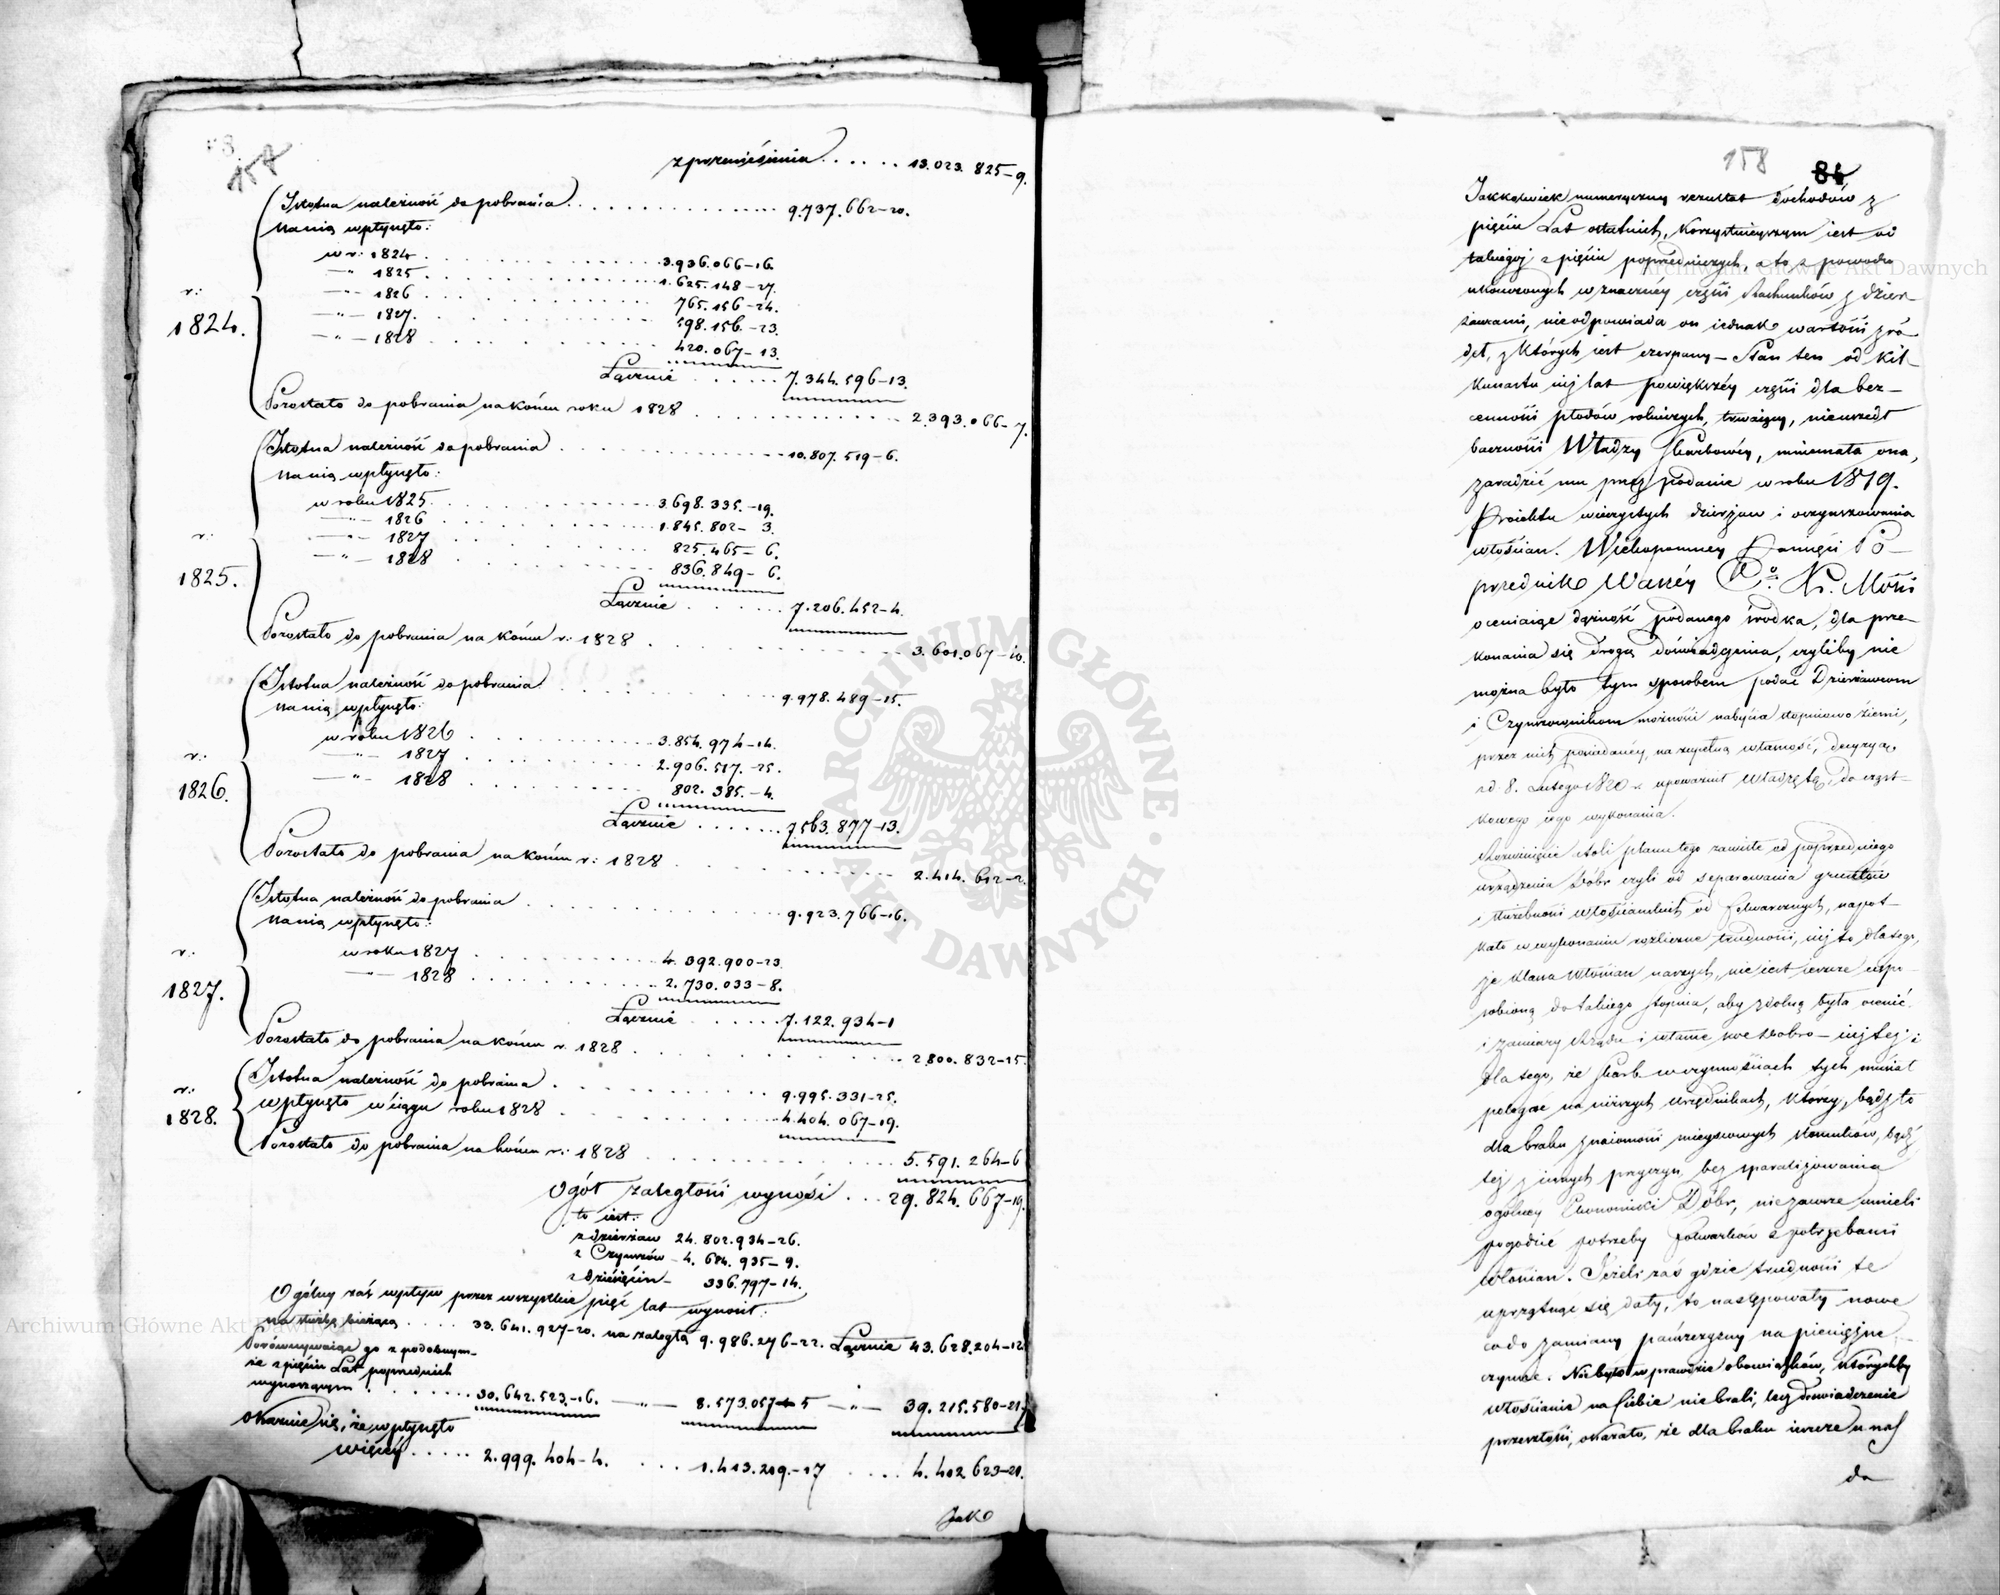 157
z przeniesienia . . . . . 13.023.825–9.
Istotna należność do pobrania . . . . . 9.737.662–20.
Na nią wpłynęło:
w r: 1824 . . . . . 3.936.066–16.
—„— 1825 . . . . . 1.625.148–27.
—„— 1826 . . . . . 765.156–24.
—„— 1827. . . . . . 598.156–23.
—„— 1828 . . . . . 420.067–13.
r: 1824.
Łącznie . . . . . 7.344.596–13.
Pozostało do pobrania na końcu roku 1828 . . . . . 2.393.066–7.
Istotna należność do pobrania . . . . . 10.807.519–6.
Na nią wpłynęło:
w roku 1825 . . . . . 3.698.335.–19.
—„— 1826 . . . . . 1.845.802– 3.
—„— 1827 . . . . . 825.465– 6.
—„— 1828 . . . . . 836.849– 6.
r: 1825.
Łącznie . . . . . 7.206.452–4.
Pozostało do pobrania na końcu r: 1828 . . . . . 3.601.067–
Istotna należność do pobrania . . . . . 9.978.489–15.
Na nią wpłynęło:
w roku 1826 . . . . . 3.854.974–14.
—„— 1827 . . . . . 2.906.517.–25.
—„— 1828 . . . . . 802.385.–4.
r: 1826.
Łącznie . . . . . 7.563.877–13.
Pozostało do pobrania na końcu r: 1828 . . . . . 2.414.612–2.
Istotna należność do pobrania . . . . . 9.923.766–16.
Na nią wpłynęło:
w roku 1827 . . . . . 4.392.900–23.
—„— 1828 . . . . . 2.730.033–8.
r: 1827.
Łącznie . . . . . 7.122.934–1
Pozostało do pobrania na końcu r. 1828 . . . . . 2.800.832–15.
Istotna należność do pobrania . . . . . 9.995.331–25.
r: 1828.
wpłynęło w ciągu roku 1828 . . . . . 4.404.067–19.
Pozostało do pobrania na końcu r: 1828 . . . . . 5.591.264–6
Ogół zaległości wynosi . . . 29.824.667–19.
to iest:
z dzierżaw 24.802.934–26.
z Czynszów – 4.684.935–9.
z dziesięcin – 336.797–14.
Ogólny zaś wpływ przez wszystkie pięć lat wynosił:
na służbę bieżącą . . . . 33.641.927–20. na zaległą 9.986.276–22. Łącznie 43.628.204–12
Porównywaiąc go z podobnym-
że z pięciu Lat poprzednich
wynoszącym . . . . . 30.642.523–16. —„— 8.573.057–5 —„— 39.215.580–21
Okazuie się, że wpłynęło
więcéy . . . . . 2.999.404–4. . . . 1.413.219.–17 . . . . 4.412.623–21.
Jako
158 84
Jakkolwiek numeryczny rezultat dochodów z
pięciu Lat ostatnich, korzystnieyszym iest od
takiegoż z pięciu poprzedniczych, a to z powodu
ukończonych w znacznéy części Rachunków z dzier-
żawcami, nieodpowiada on iednak wartości źró-
deł, z których iest czerpany – Stan ten od kil-
kunastu iuż lat powiększéy części dla bez-
cenności płodów rolniczych, trwaiący, nieuszedł
baczności Władzy Skarbowéy, mniemała ona,
zaradzić mu przez podanie w roku 1819.
Proiektu wieczystych dzierżaw i oczynszowania
włościan. Wiekopomney Pamięci Po-
przednik Waszéy C. K. Mości
oceniaiąc dążność podanego środka, dla prze-
konania się drogą doświadczenia, czyliby nie
można było tym sposobem podać Dzierżawcom
i Czynszownikom możności nabycia stopniowo ziemi,
przez nich posiadanéy, na zupełną własność, decyzyą
z d. 8. Lutego 1820 r. upoważnił Władzę tę, do cząst-
kowego iego wykonania.
Rozwinięcie atoli planu tego zawisłe od poprzedniego
urządzenia Dóbr czyli od separowania gruntów
i służebności włościańskich od folwarcznych, napot-
kało w wykonaniu rozliczne trudności, iuż to dlatego,
że klassa Włościan naszych, nie iest ieszcze uspo-
sobioną do takiego stopnia, aby zdolną była ocenić
i zamiary Rządu i własne swe dobro – iuż też i
dla tego, że Skarb w czynnościach tych musiał
polegać na niższych urzędnikach, którzy, bądź to
dla braku znaiomości mieyscowych stosunków, bądź
też z innych przyczyn, bez sparaliżowania
ogólney Ekonomiki Dóbr, nie zawsze umieli
pogodzić potrzeby folwarków z potrzebami
Włościan. Jeżeli zaś gdzie trudności te
uprzątnąć się dały, to następowały nowe
co do zamiany pańszczyzny na pieniężne
czynsze. Nie było wprawdzie obowiązków, którychby
włościanie na siebie nie brali, lecz doświadczenie
przeszłości, okazało, że dla braku ieszcze u nas
da
Archiwum Główne Akt Dawnych
Archiwum Główne Akt Dawnych
ARCHIWUM GŁÓWNE AKT DAWNYCH